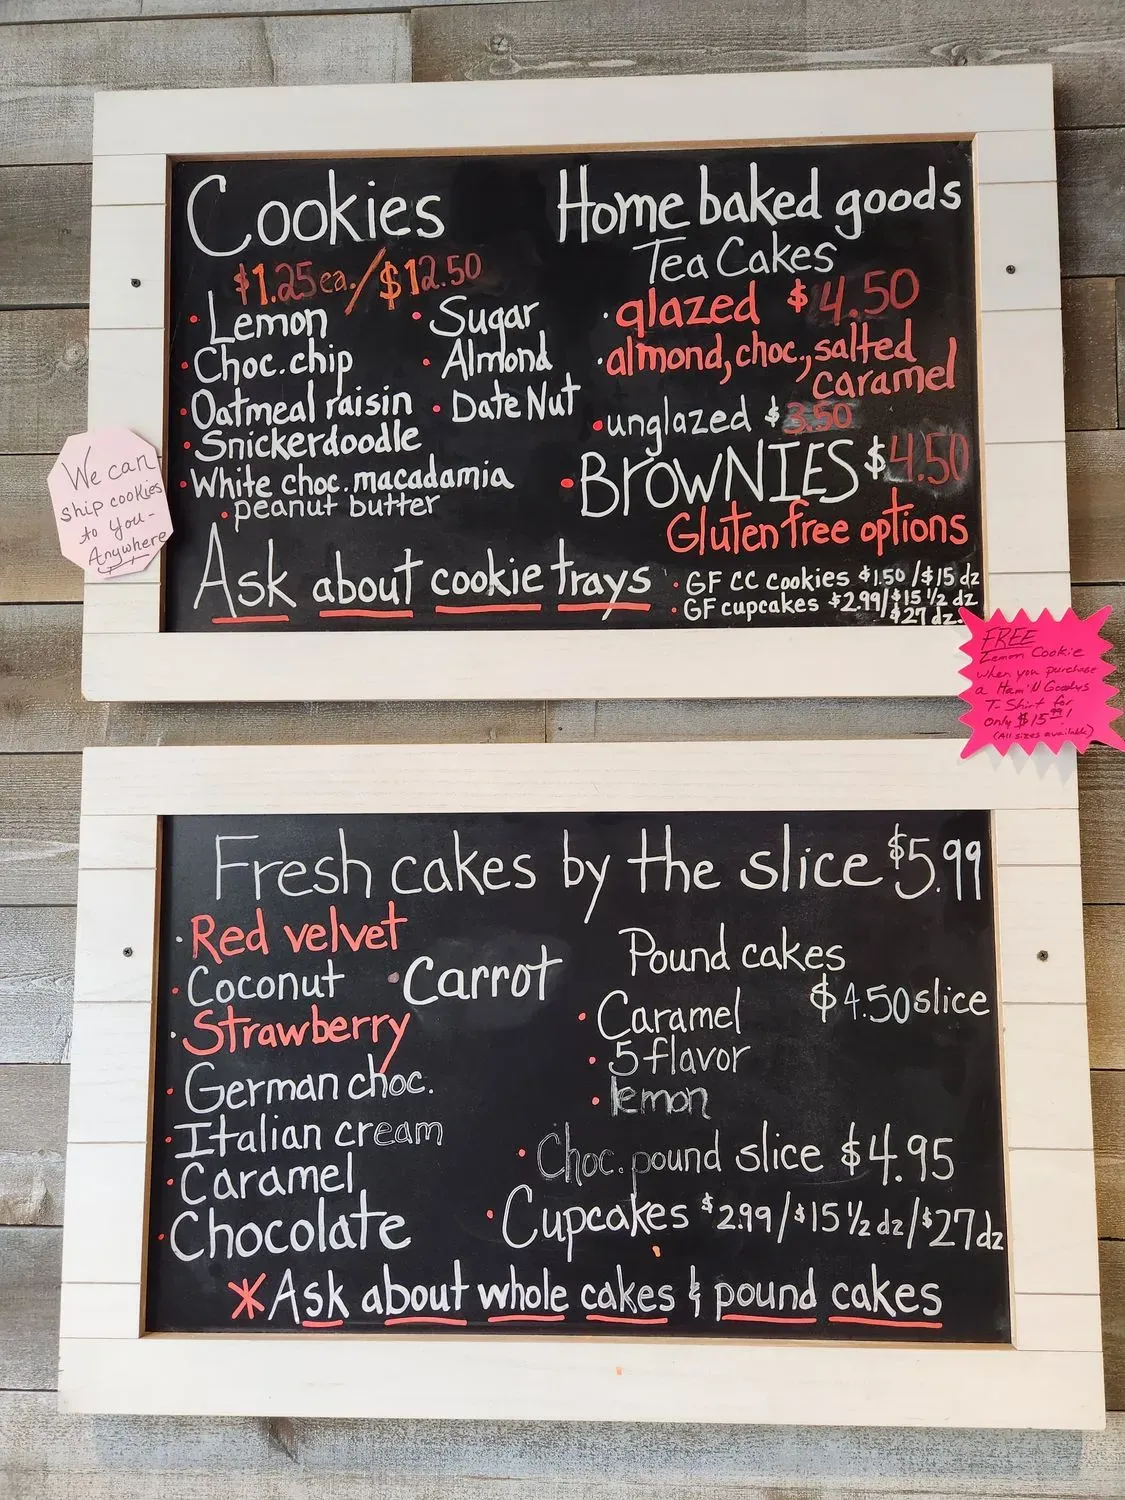 Cookies
$1.25 ea./$12.50
· Lemon
· Choc. chip
· Oatmeal raisin
· Snickerdoodle
· White choc. macadamia
· peanut butter
· Sugar
· Almond
· Date Nut
Ask about cookie trays
Home baked goods
Tea Cakes
· glazed $4.50
· almond, choc., salted
caramel
· unglazed $3.50
· BrowNIES $4.50
Gluten free options
· GF CC cookies $1.50/$15 dz
· GF cupcakes $2.99/$15 1/2 dz
$27 dz.
We can
ship cookies
to you-
Anywhere
FREE
Lemon Cookie
when you purchase
a Ham'N Goodys
T-Shirt for
only $15.99!
(All sizes available)
Fresh cakes by the slice $5.99
· Red velvet
· Coconut
· Carrot
· Strawberry
· German choc.
· Italian cream
· Caramel
· Chocolate
Pound cakes
$4.50 slice
· Caramel
· 5 flavor
· lemon
· Choc. pound slice $4.95
· Cupcakes $2.99/$15 1/2 dz/$27 dz
* Ask about whole cakes & pound cakes